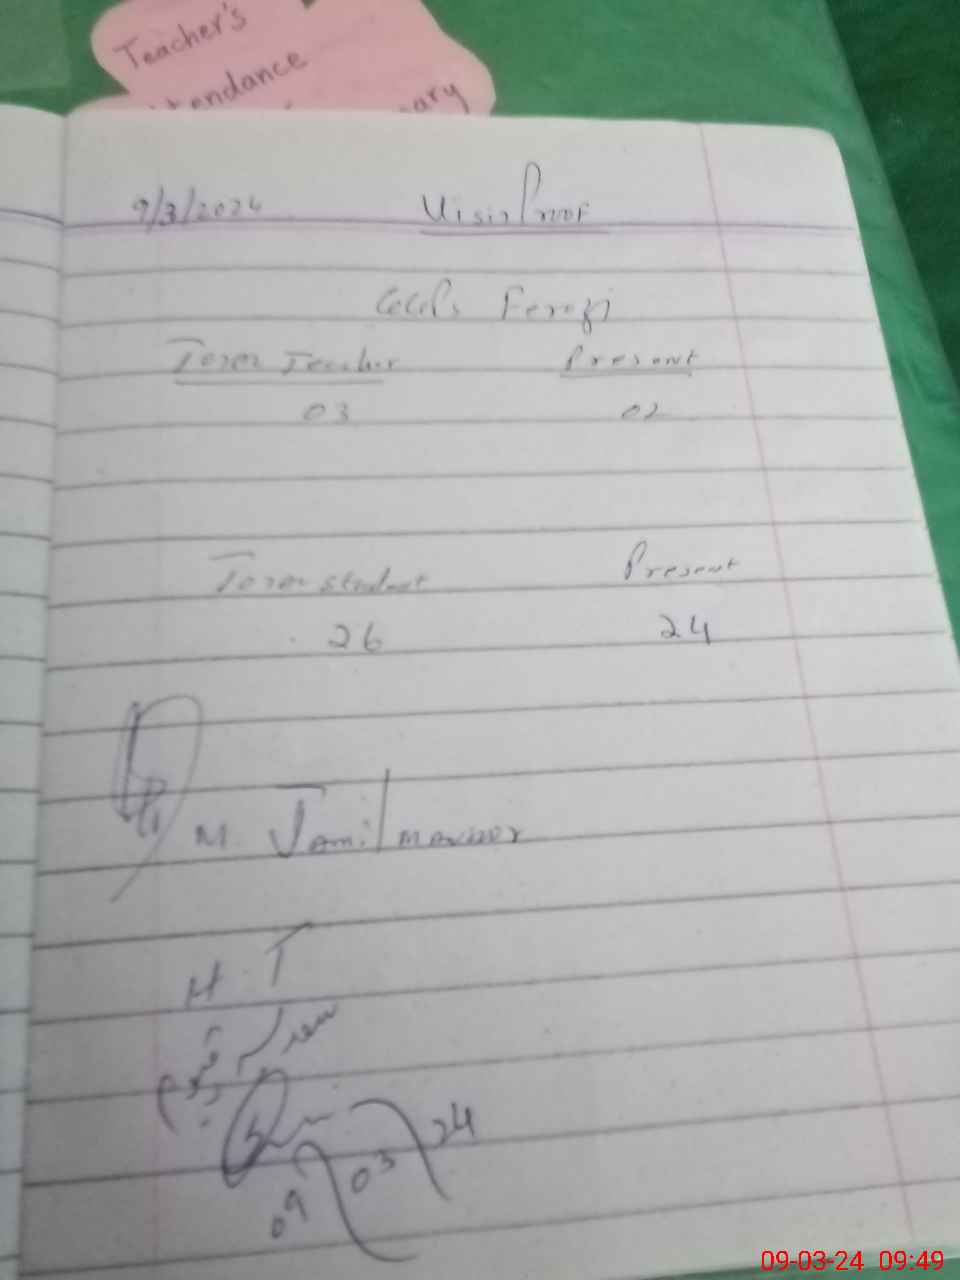 Teacher's
ttendance
ary
9/3/2024 Visit Proof
Total Teacher Present
03 02
Total student Present
26 24
M. Jamil
H.T
09 03 24
09-03-24 09:49